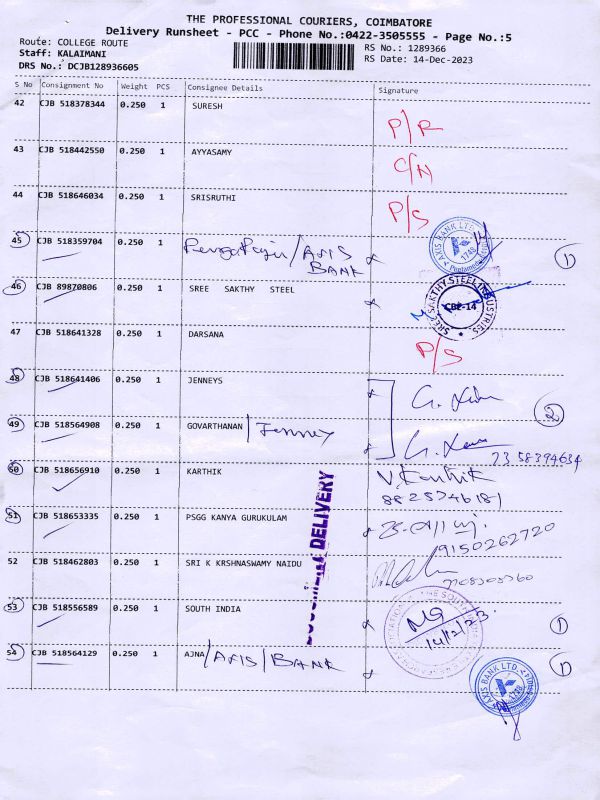 THE PROFESSIONAL COURIERS, COIMBATORE
Delivery Runsheet - PCC - Phone No.:0422-3505555 - Page No.:5
Route: COLLEGE ROUTE RS No.: 1289366
Staff: KALAIMANI RS Date: 14-Dec-2023
DRS No.: DCJB128936605
S No Consignment No Weight PCS Consignee Details Signature
42 CJB 518378344 0.250 1 SURESH P/R
43 CJB 518442550 0.250 1 AYYASAMY
44 CJB 518646034 0.250 1 SRISRUTHI P/S
45 CJB 518359704 0.250 1 /AXIS BANK AXIS BANK LTD 1748 1
46 CJB 89870806 0.250 1 SREE SAKTHY STEEL SREE SAKTHY STEEL INDUSTRIES CBE-14
47 CJB 518641328 0.250 1 DARSANA P/S
48 CJB 518641406 0.250 1 JENNEYS
2
49 CJB 518564908 0.250 1 GOVARTHANAN / Jenney
7358394634
50 CJB 518656910 0.250 1 KARTHIK V. Karthik
8825746181
DOCUMENT DELIVERY
51 CJB 518653335 0.250 1 PSGG KANYA GURUKULAM
9150262720
52 CJB 518462803 0.250 1 SRI K KRSHNASWAMY NAIDU
53 CJB 518556589 0.250 1 SOUTH INDIA 14/12/23 1
54 CJB 518564129 0.250 1 AJNA /AXIS/BANK 1
AXIS BANK LTD. 1748